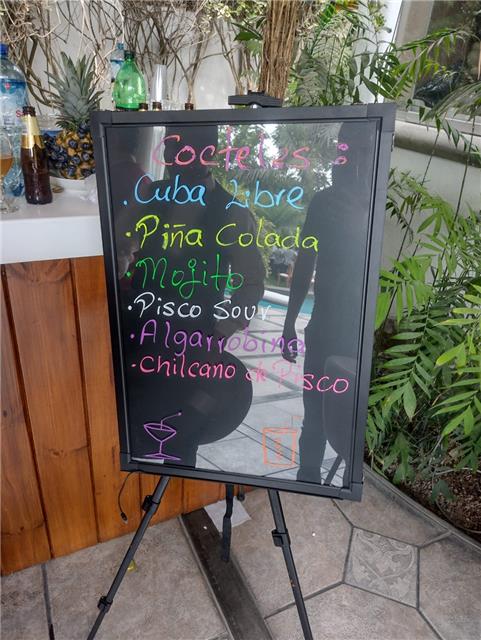 Cocteles :
. Cuba Libre
. Piña Colada
. Mojito
. Pisco Sour
. Algarrobina
. Chilcano de Pisco